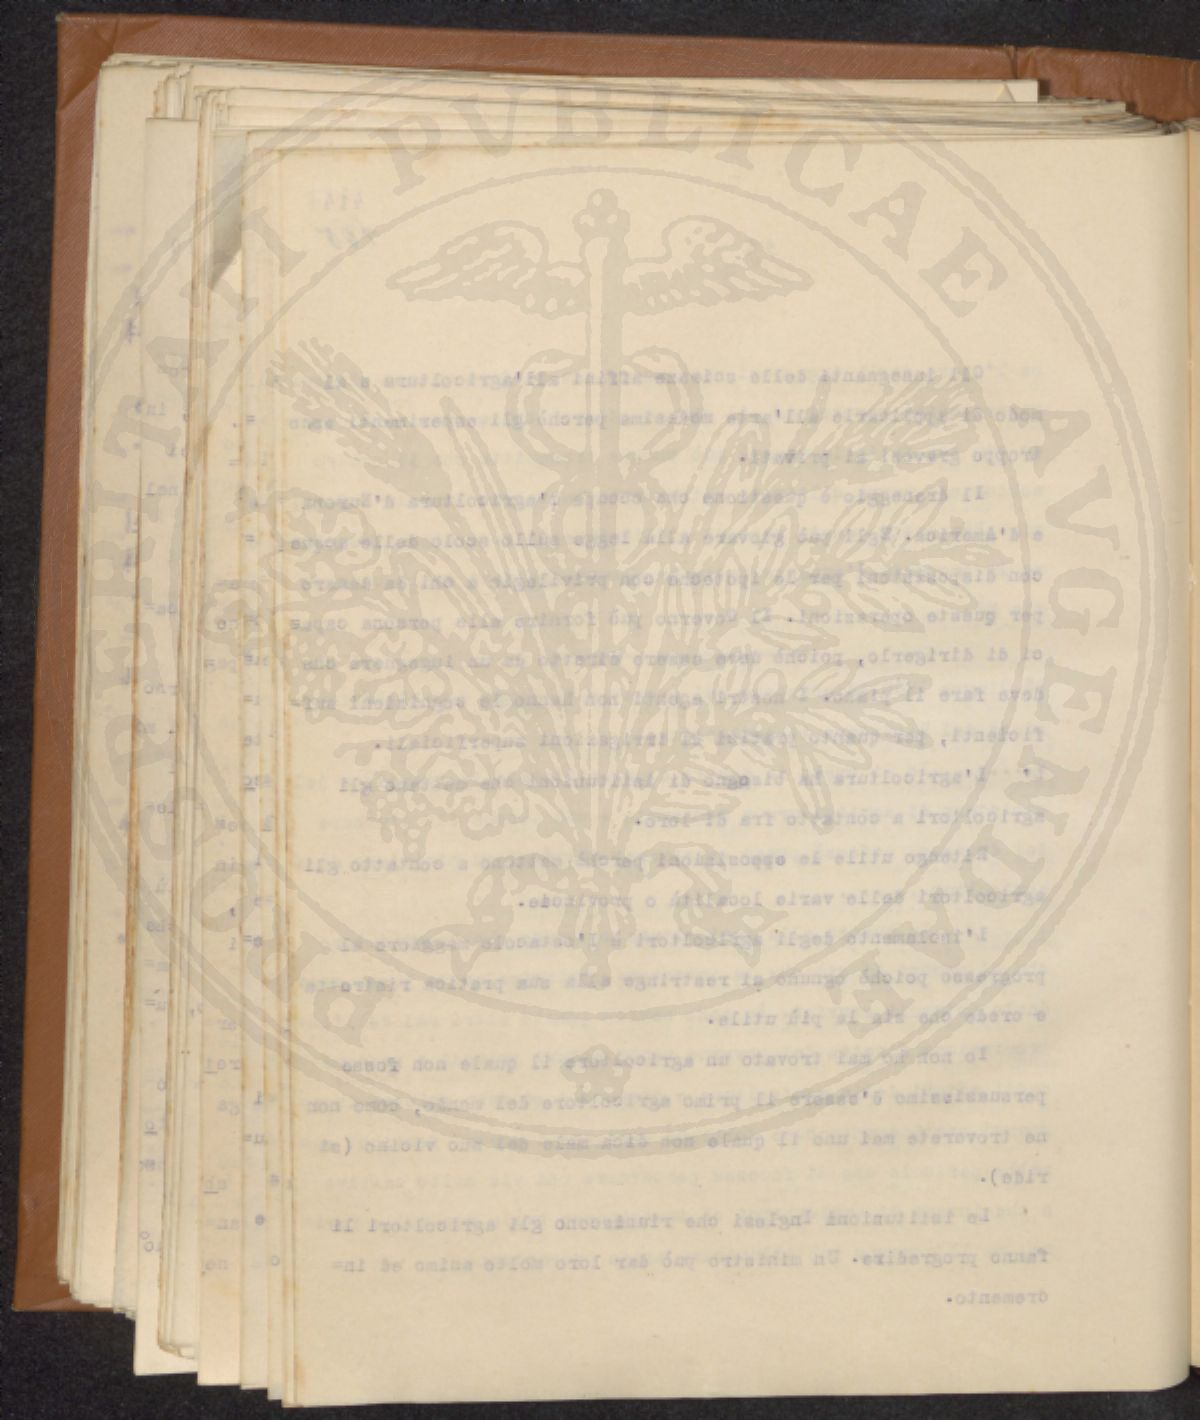 PROSPERITATI PUBLICAE AUGENDAE
414
Gli insegnanti delle scienze affini all'agricoltura e al
modo di applicarle all'arte medesima perchè gli esperimenti sono
troppo gravosi ai privati.
Il drenaggio è questione che occupa l'agricoltura d'Europa
e d'America. Egli può giovare alla legge sullo scolo delle acque,
con disposizioni per le ipoteche con privilegit a chi da denaro
per queste operazioni. Il Governo può fornire alle persone capa=
ci di dirigerlo, poichè deve essere diretto da un ingegnere che
deve fare il piano. I nostri agenti non hanno le cognizioni suf=
ficienti, per quanto pratici di irrigazioni superficiali.
L'agricoltura ha bisogno di istituzioni che mettano gli
agricoltori a contatto fra di loro.
Ritengo utile le esposizioni perchè mettono a contatto gli
agricoltori delle varie località o provincie.
L'isolamento degli agricoltori è l'ostacolo maggiore al
progresso poichè ognuno si restringe alla sua pratica ristretta
e crede che sia la più utile.
Io non ho mai trovato un agricoltore il quale non fosse
persuasissimo d'essere il primo agricoltore del mondo, como non
ne troverete mai uno il quale non dica male del suo vicino (si
ride).
Le istituzioni inglesi che riuniscono gli agricoltori li
fanno progredire. Un ministro può dar loro molto animo ed in=
cremento.